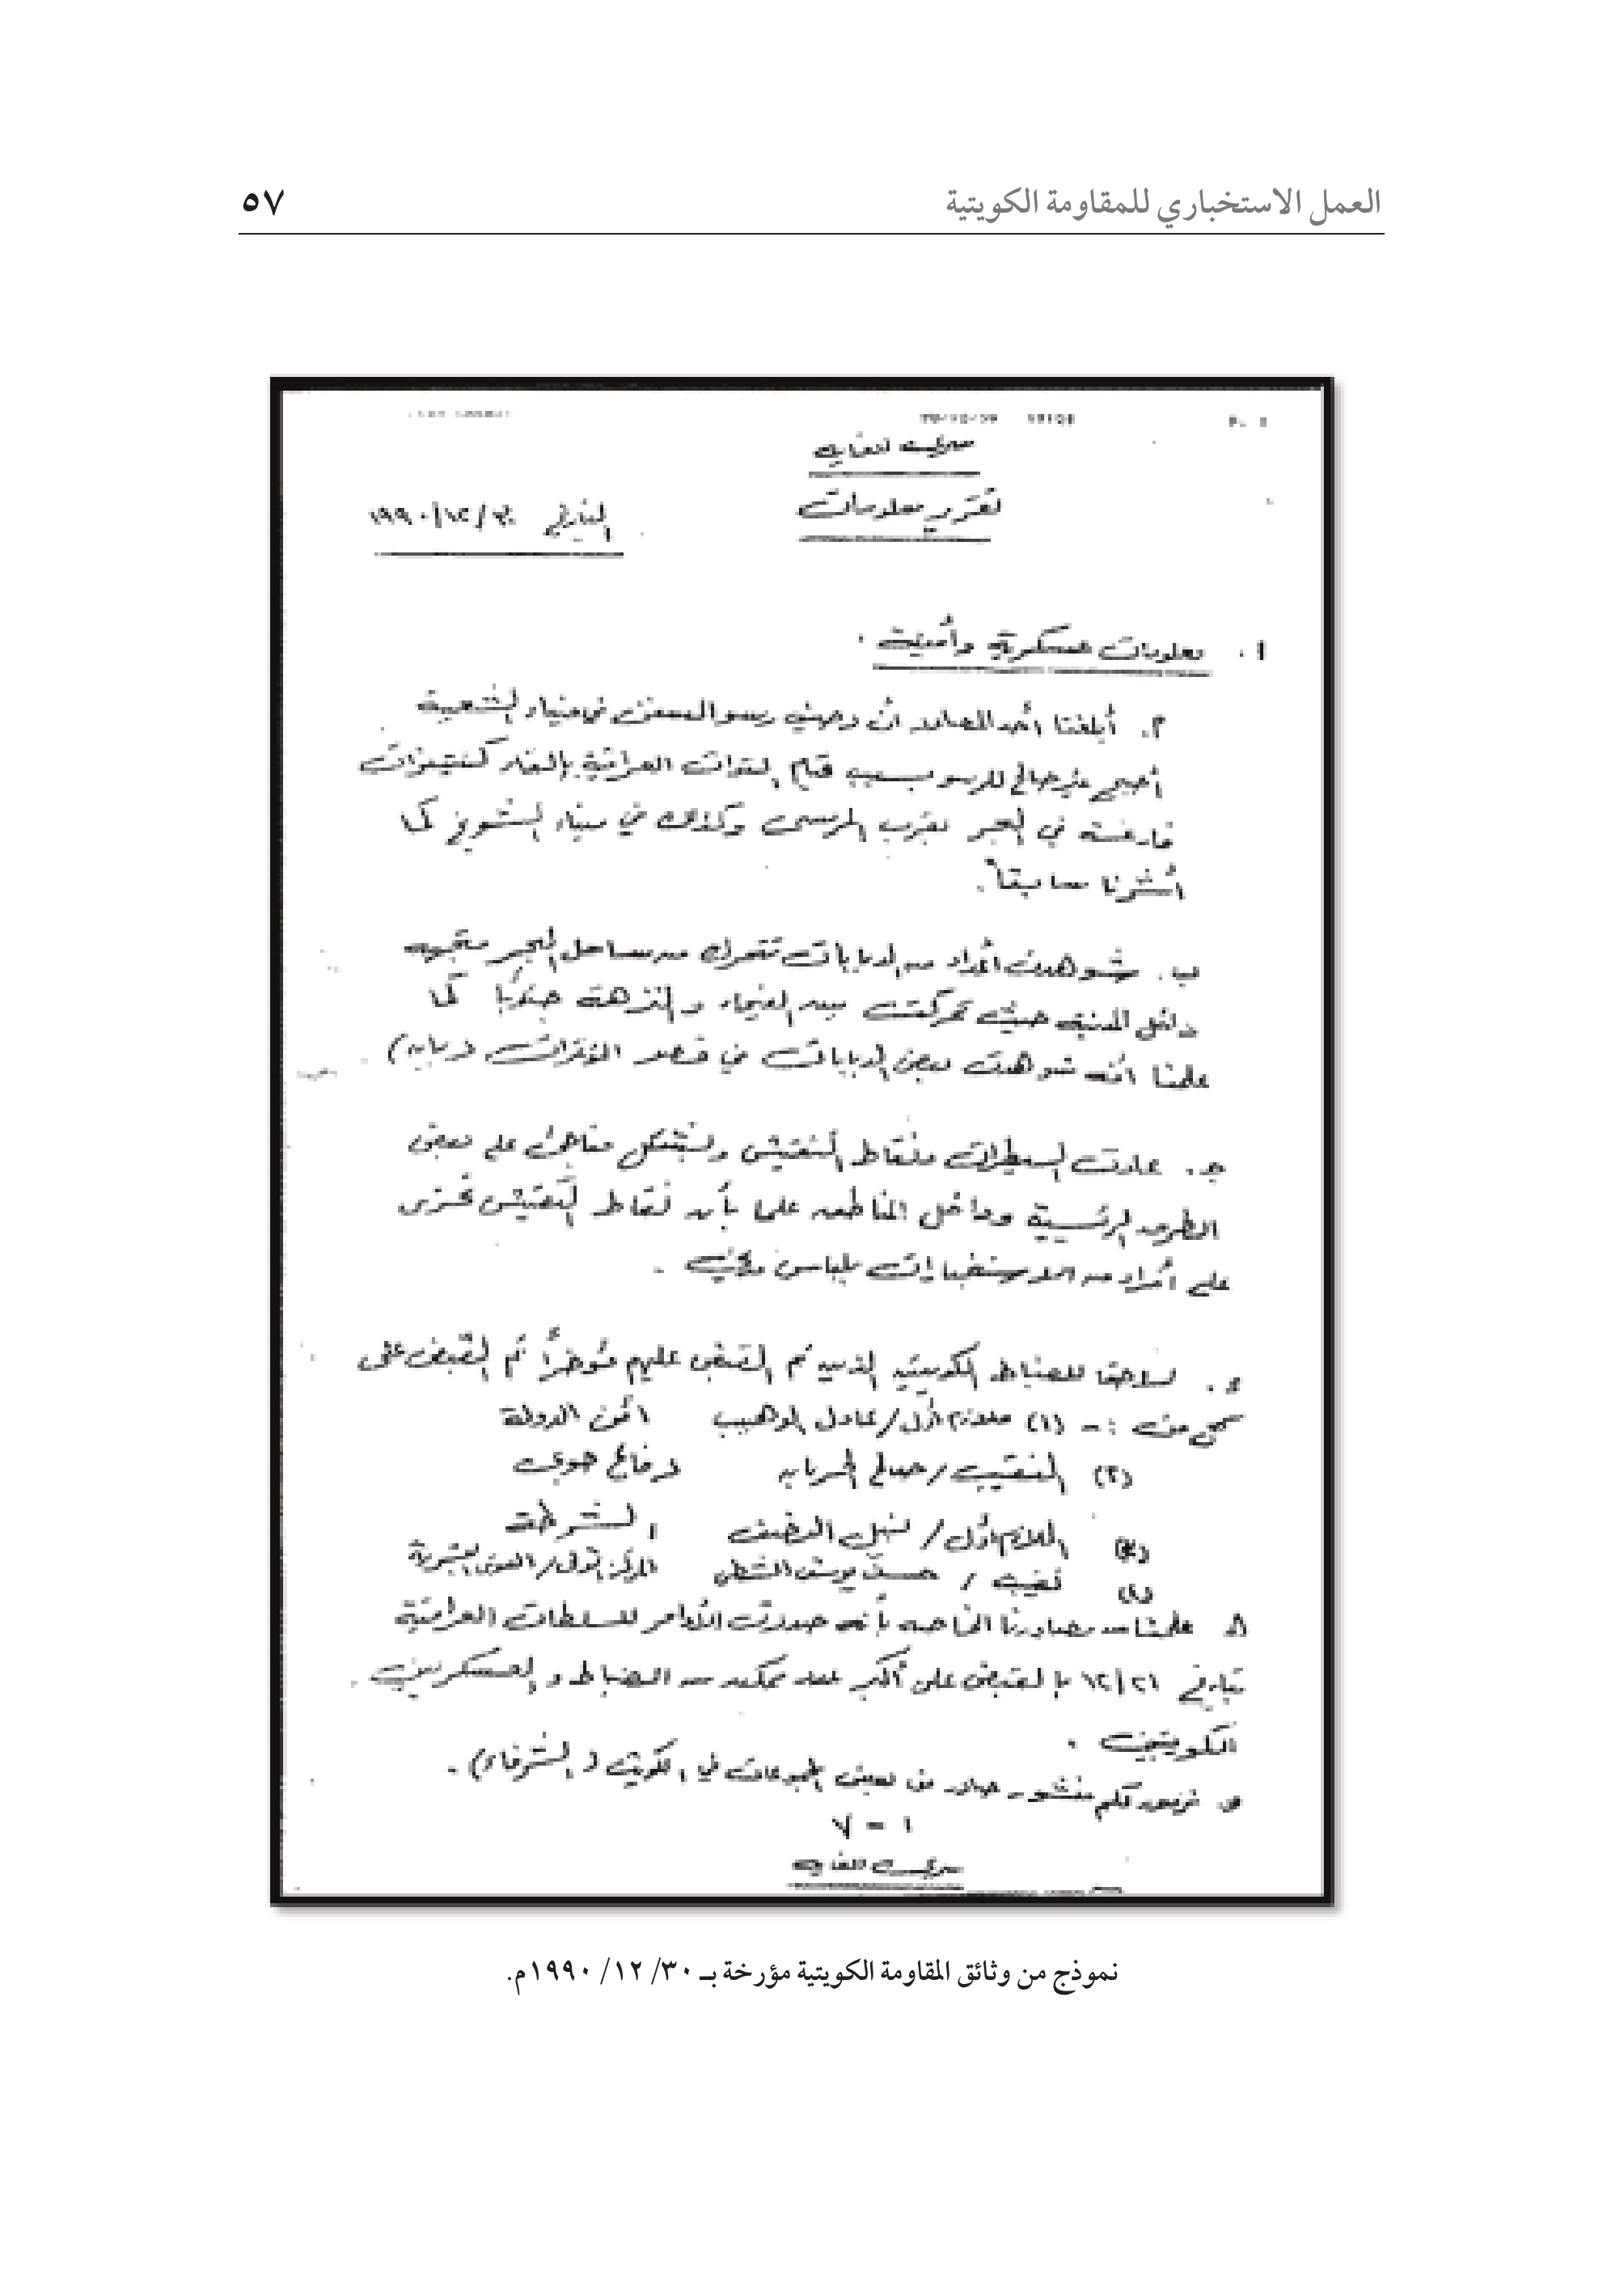 العمل الاستخباري للمقاومة الكويتية
٥٧
سري للغاية
تقرير معلومات
التاريخ ٣٠/١٢/١٩٩٠
١. معلومات عسكرية وأمنية.
أبلغنا أحد المصادر أن رسو السفن في ميناء الشعيبة
أصبح غير صالح للرسو بسبب قيام القوات العراقية
فارغة في البحر بقرب المرسى وكذلك في ميناء الشويخ كما
أشرنا سابقاً.
ب. شوهدت أعداد من الدبابات تتحرك من ساحل البحر متجهه
داخل المدينة حيث بين الفيحاء والنزهة جنوباً كما
علمنا أنه شوهدت بعض الدبابات في قصر المؤتمرات (بيان)
جـ. عادت السيطرات ونقاط التفتيش وبشكل مفاجئ على بعض
الطرق الرئيسية وداخل المناطق علما بأن نقاط التفتيش تحتوي
على أفراد من الاستخبارات بلباس مدني.
د. لاحقا للضباط الكويتين الذين تم القبض عليهم مؤخراً تم القبض على
كل من :- (١) ملازم أول/عادل الوهيب أمن الدولة
(٢) النقيب/صالح دفاع جوي
الملازم أول/ نبيل الشرطة
نقيب / حسين يوسف الشطي القوى البشرية
علمنا من مصادرنا الخاصه بأنه صدرت الأوامر للسلطات العراقية
بتاريخ ١٢/٢١ بالقبض على أكبر عدد ممكن من الضباط والعسكريين
الكويتيين.
لكم منشور صادر من بعض المجموعات في الكويت (الشرفاء).
١ - ٧
سري للغاية
نموذج من وثائق المقاومة الكويتية مؤرخة بـ ٣٠/ ١٢/ ١٩٩٠م.